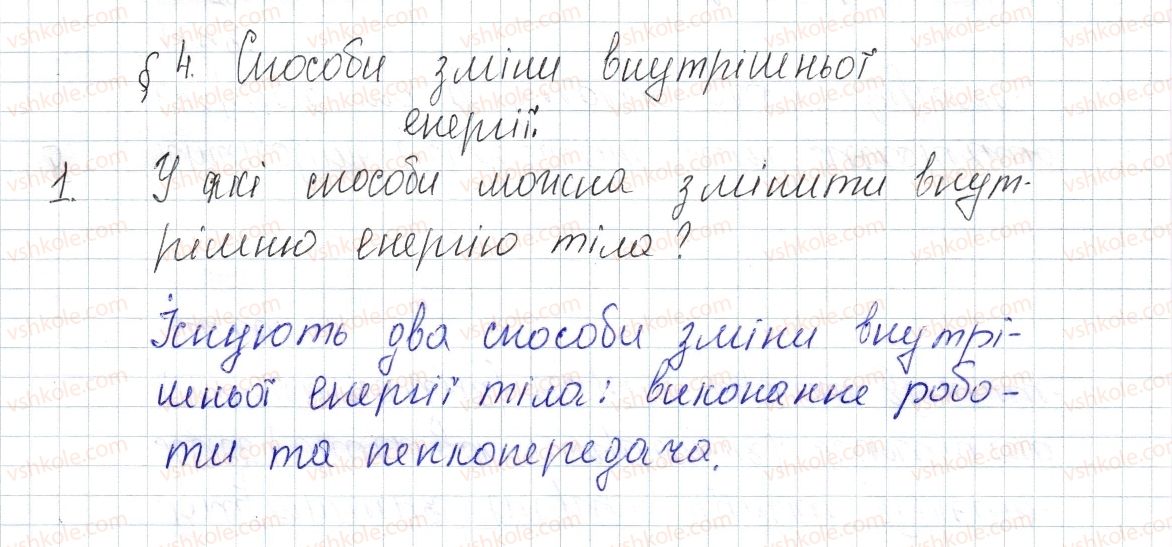 § 4. Способи зміни внутрішньої
енергії.
1. У які способи можна змінити внут-
рішню енергію тіла?
Існують два способи зміни внутрі-
шньої енергії тіла: виконання робо-
ти та теплопередача.